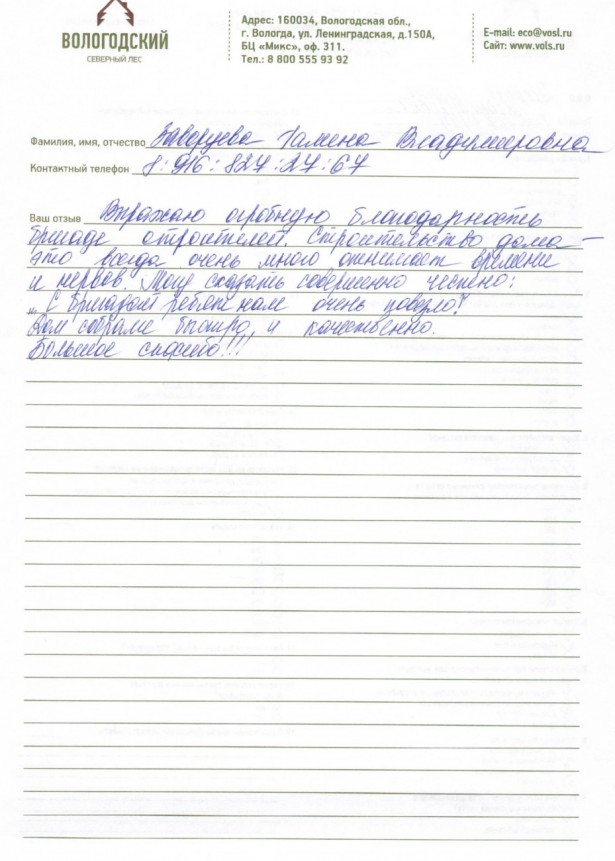 ВОЛОГОДСКИЙ
СЕВЕРНЫЙ ЛЕС
Адрес: 160034, Вологодская обл.,
г. Вологда, ул. Ленинградская, д.150А,
БЦ «Микс», оф. 311.
Тел.: 8 800 555 93 92
E-mail: eco@vosl.ru
Сайт: www.vols.ru
Фамилия, имя, отчество Заворуева Галина Владимировна
Контактный телефон 8:916:827:27:67
Ваш отзыв Выражаю огромную благодарность
бригаде строителей. Строительство дома –
это всегда очень много отнимает времени
и нервов. Могу сказать совершенно честно:
„С бригадой ребят нам очень повезло!
Дом собрали быстро, и качественно.
Большое спасибо!!!